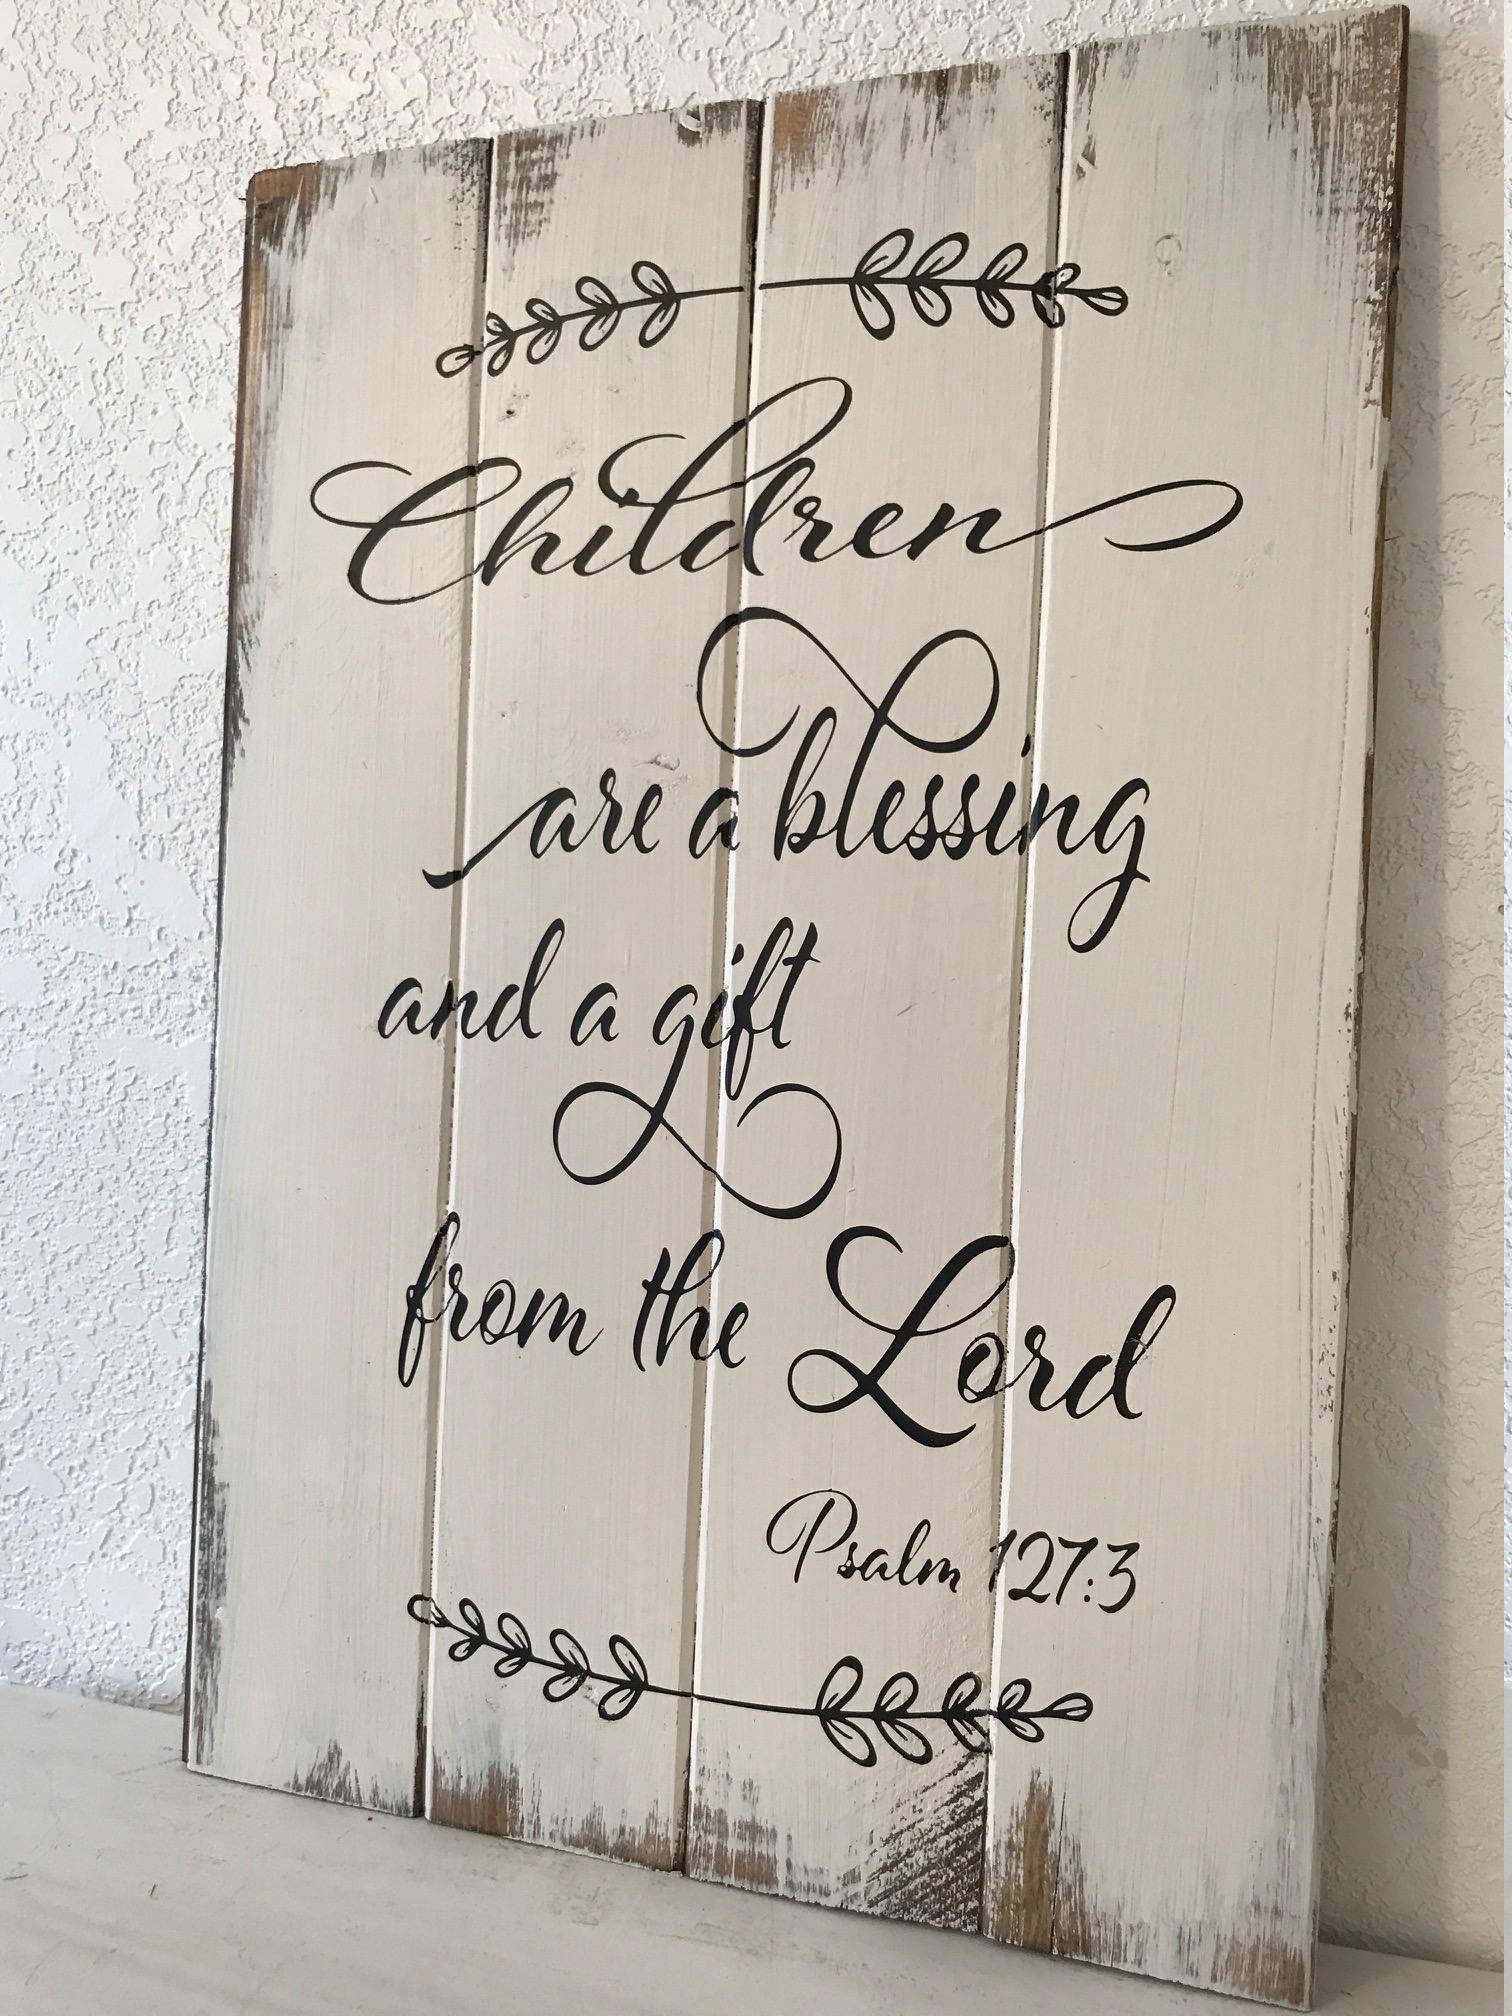 Children
are a blessing
and a gift
from the Lord
Psalm 127:3